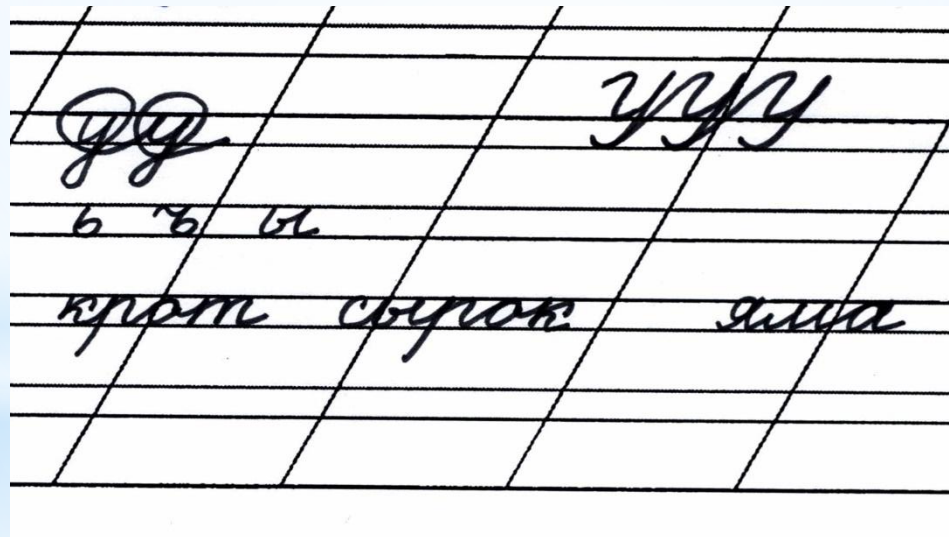 уу УУУ
ь ъ ы
крот сырок яма